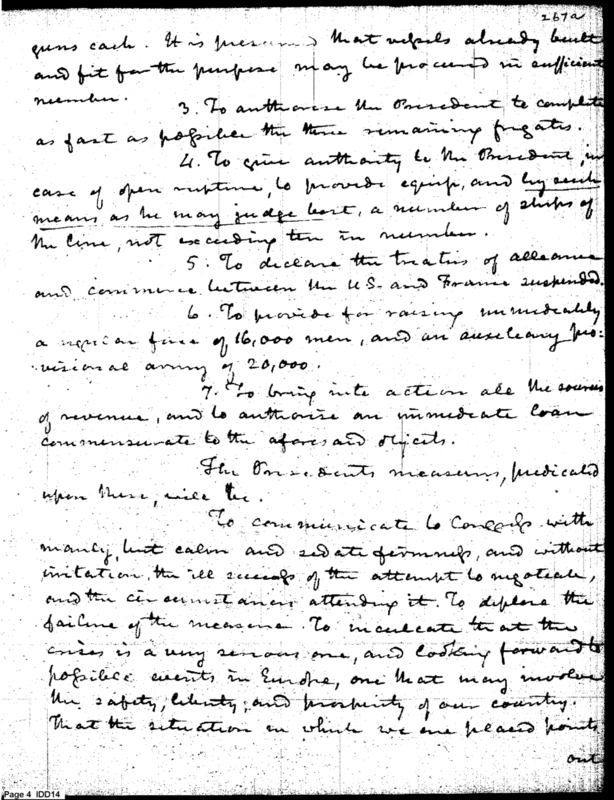 267a
guns each. It is presumed that vessels already built
and fit for the purpose may be procured in sufficient
number.
3. To authorise the President to complete
as fast as possible the three remaining frigates.
4. To give authority to the President, in
case of open rupture, to provide equip, and by such
means as he may judge best, a number of ships of
the line, not exceeding ten in number.
5. To declare the treaties of alleance
and commerce between the U.S. and France suspended.
6. To provide for raising immediately
a regular force of 16,000 men, and an auxileary pro-
visional army of 20,000.
7. To bring into action all the sources
of revenue, and to authorise an immediate loan
commensurate to the aforesaid objects.
The Presidents measures, predicated
upon these, will be.
To communicate to Congress with
manly, but calm and sedate firmness, and without
irritation, the ill success of the attempt to negotiate,
and the circumstances attending it. To deplore the
failure of the measure. To inculcate that the
crisis is a very serious one, and looking forward to
possible events in Europe, one that may involve
the safety, liberty, and prosperity of our country.
That the situation in which we are placed points
out
Page 4 IDD14